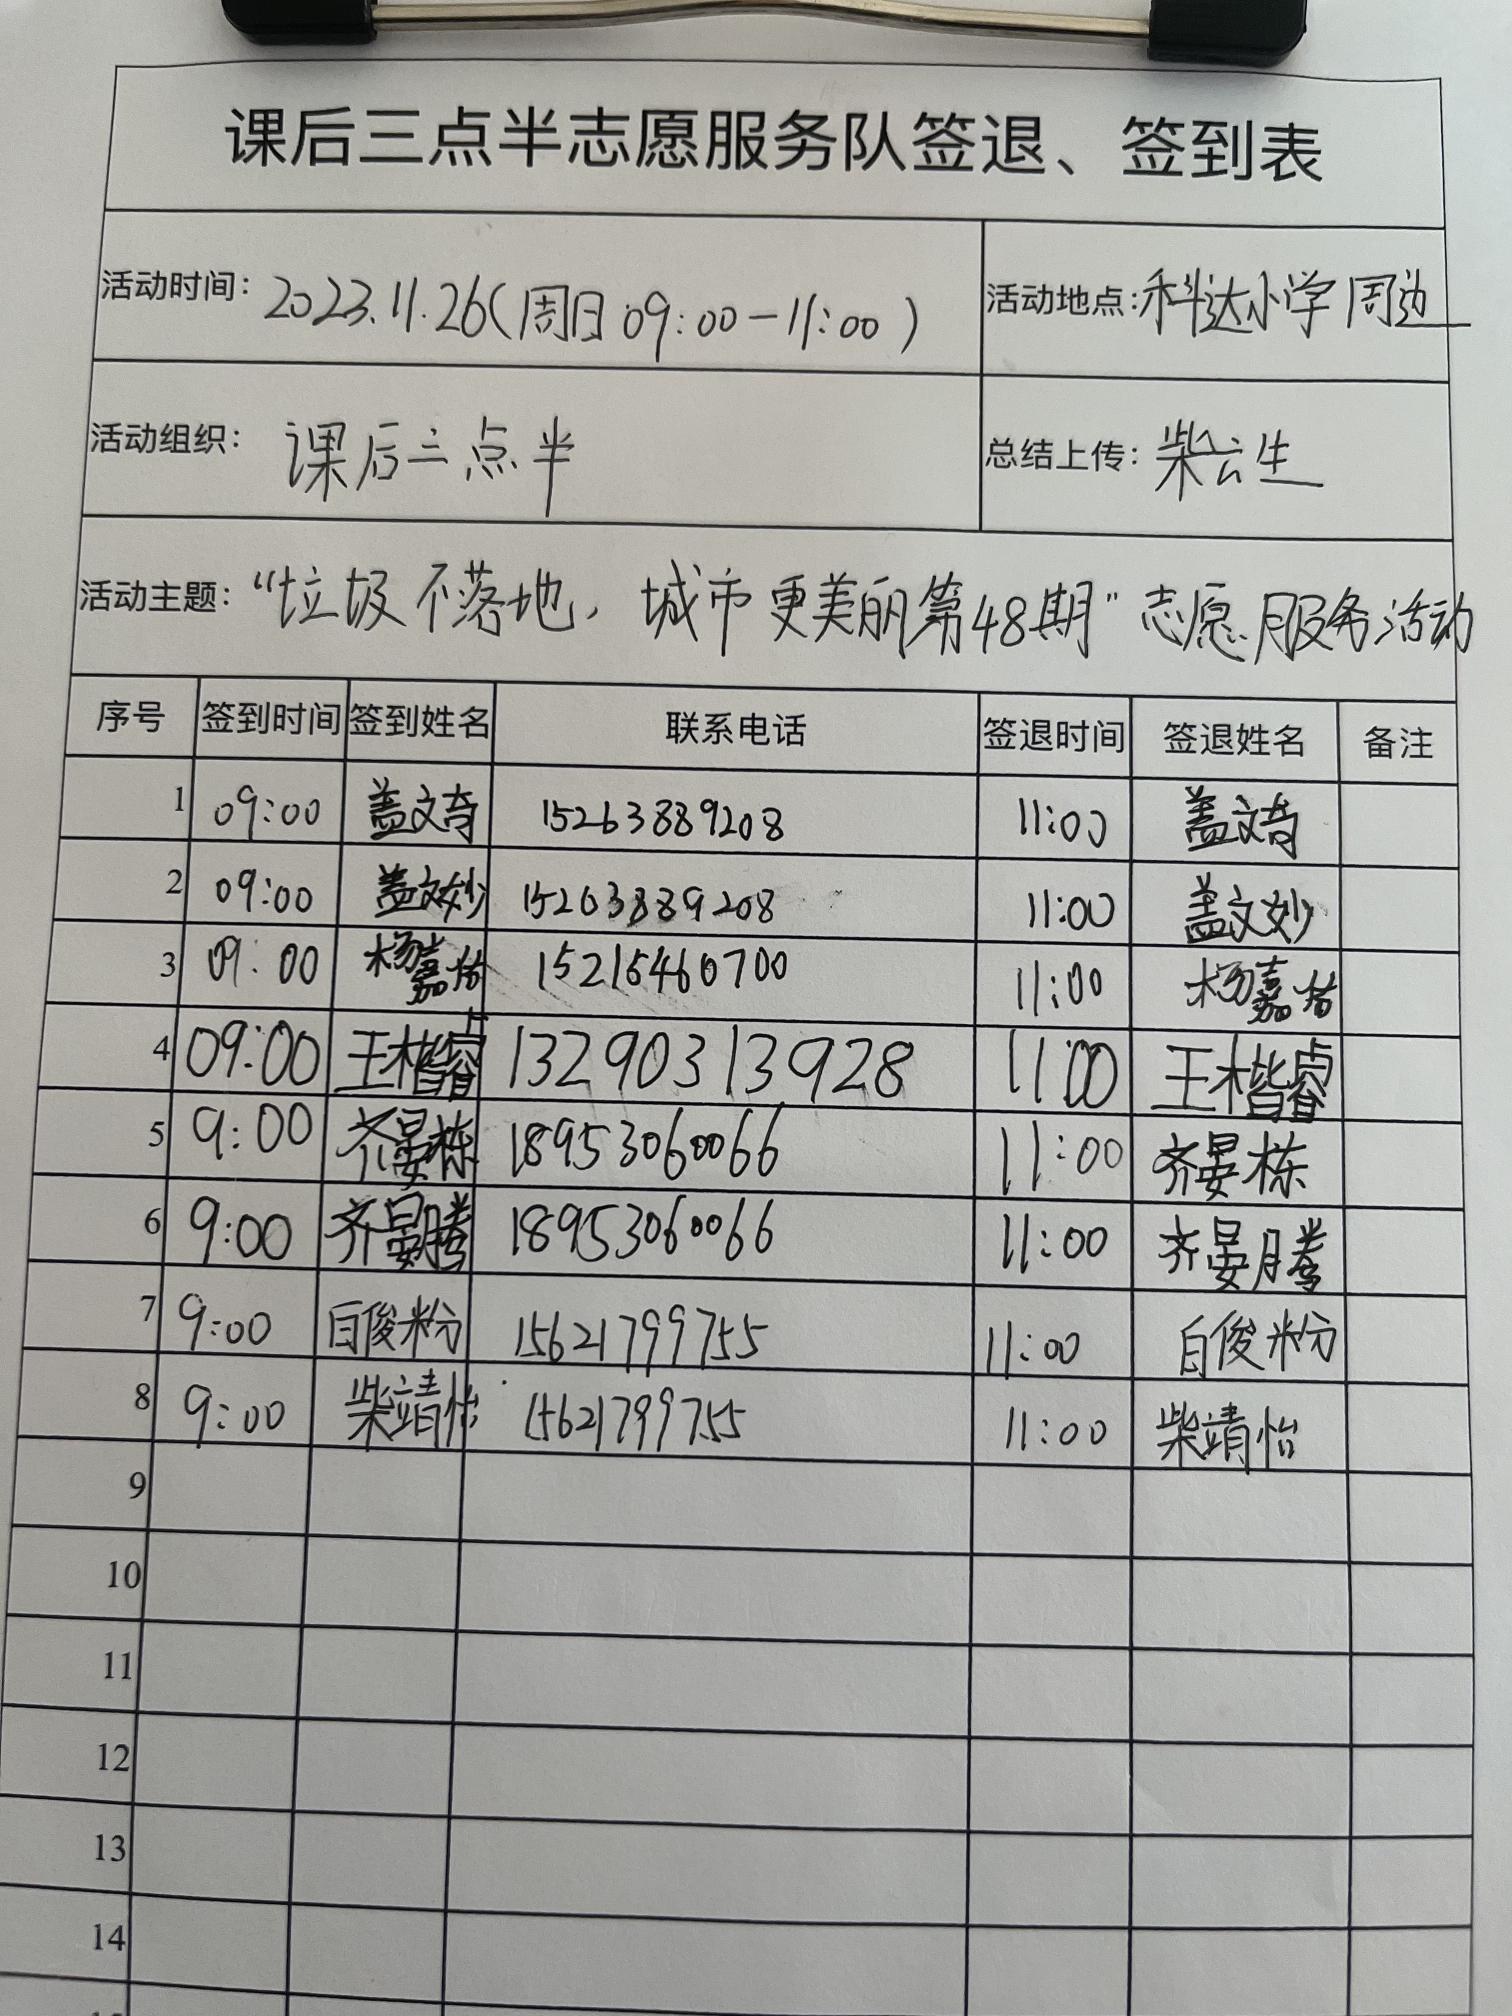 课后三点半志愿服务队签退、签到表
活动时间：2023.11.26（周日 09:00-11:00） 活动地点：科达小学周边
活动组织：课后三点半 总结上传：柴云生
活动主题：“垃圾不落地，城市更美丽第48期”志愿服务活动
序号 签到时间 签到姓名 联系电话 签退时间 签退姓名 备注
1 09:00 盖文奇 15263889208 11:00 盖文奇
2 09:00 盖文妙 15263889208 11:00 盖文妙
3 09:00 杨嘉怡 15215460700 11:00 杨嘉怡
4 09:00 王楷睿 13290313928 11:00 王楷睿
5 9:00 齐晏栋 18953060066 11:00 齐晏栋
6 9:00 齐晏腾 18953060066 11:00 齐晏腾
7 9:00 白俊粉 15621799755 11:00 白俊粉
8 9:00 柴靖怡 15621799755 11:00 柴靖怡
9
10
11
12
13
14